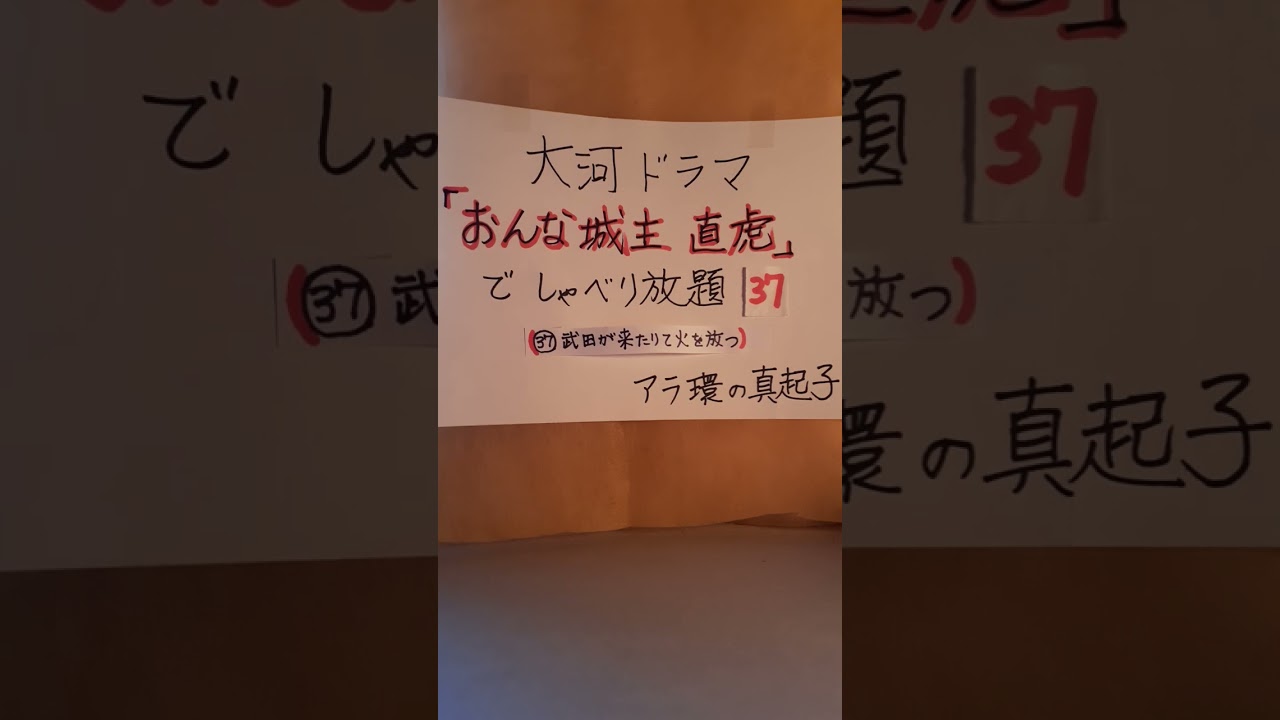 大河ドラマ
「おんな城主 直虎」
で しゃべり放題 37
(㊲ 武田が来たりて火を放つ)
アラ環の真起子